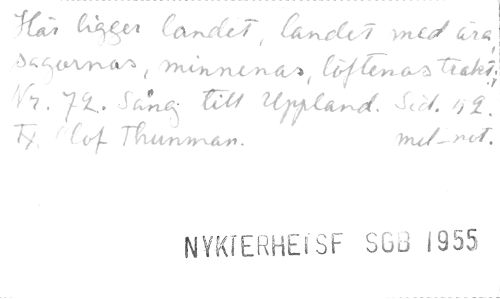 Här ligger landet, landet med ära,
sagornas, minnenas, löftenas trakt.
Nr. 72. Sång till Uppland. Sid. 42.
Tx. Olof Thunman. mel-not.
NYKTERHETSF SGB 1955